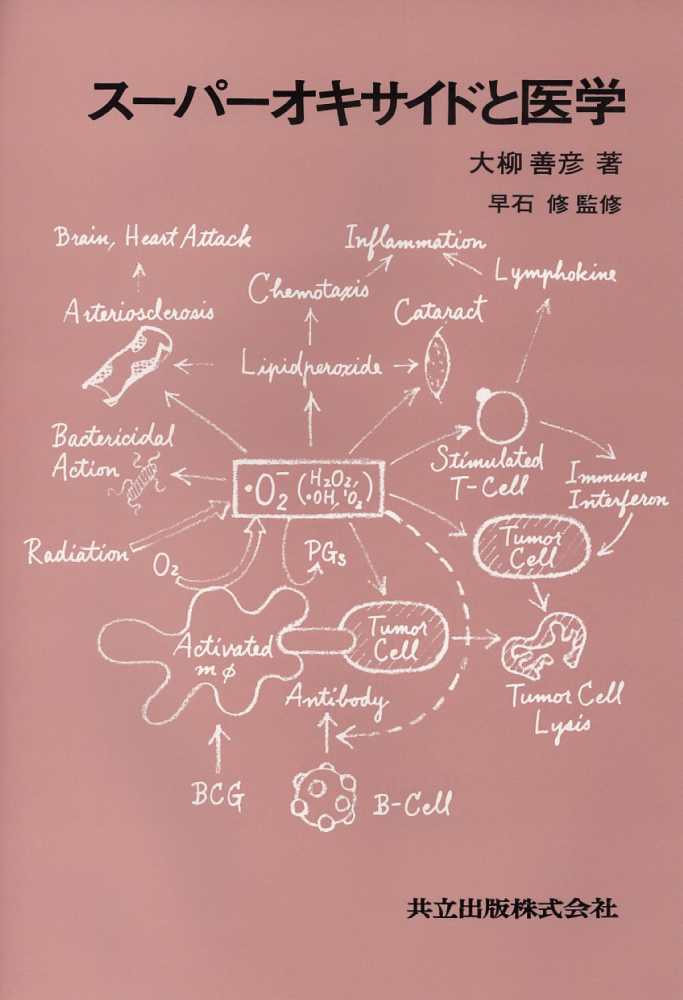 スーパーオキサイドと医学
大柳 善彦 著
早石 修 監修
Brain, Heart Attack
Inflammation
Lymphokine
Chemotaxis
Arteriosclerosis
Cataract
Lipidperoxide
Bactericidal
Action
Stimulated
T-Cell
Immune
Interferon
·O₂⁻ (H₂O₂,
·OH, ¹O₂)
Tumor
Cell
Radiation
O₂
PGs
Activated
mφ
Tumor
Cell
Antibody
Tumor Cell
Lysis
BCG
B-Cell
共立出版株式会社